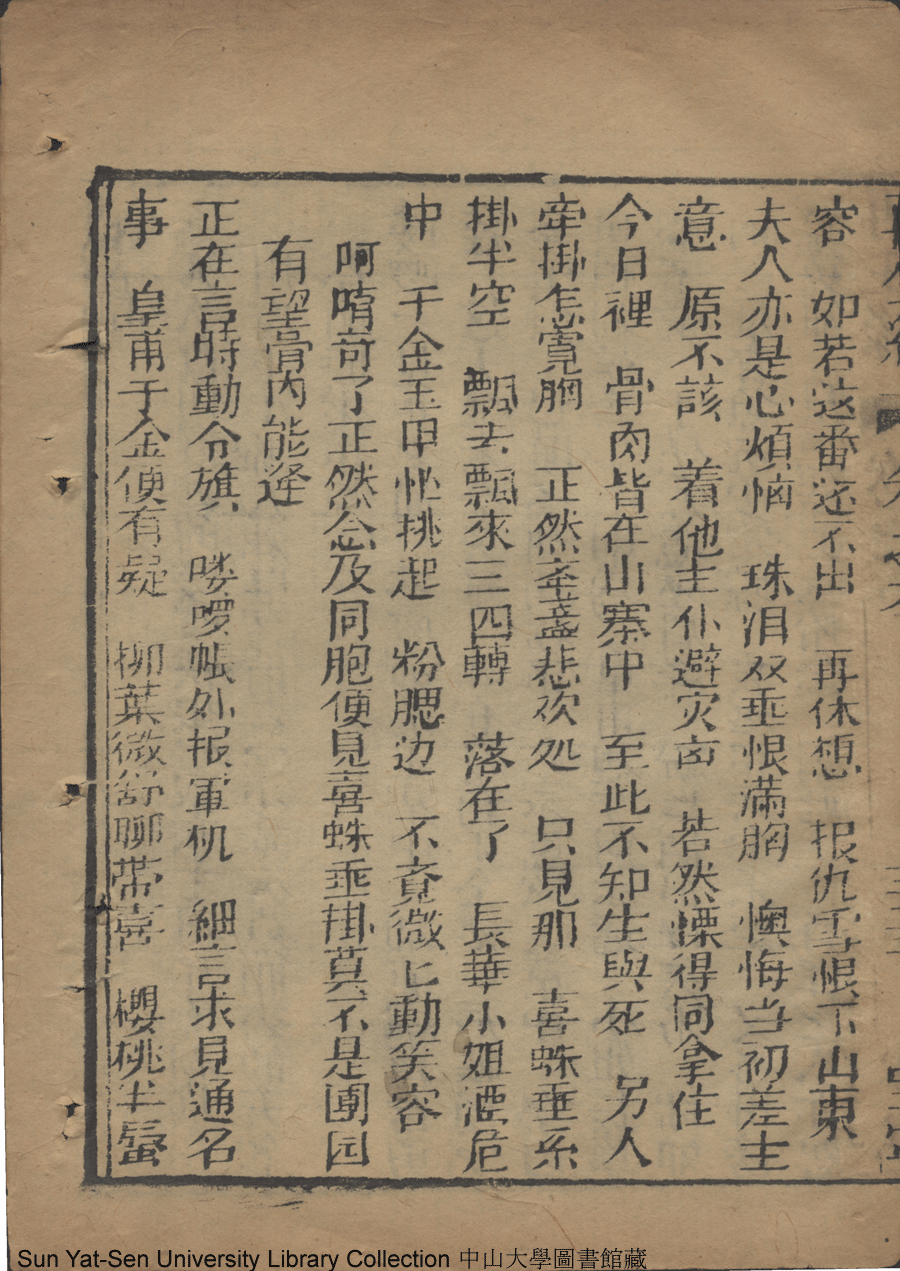 容　如若这番还不出　再休想　报仇雪恨下山東
夫人亦是心煩恼　珠泪双垂恨滿胸　懊悔当初差主
意　原不該　着他主仆避灾凶　若然慄得同拿住
今日裡　骨肉皆在山寨中　至此不知生與死　另人
牵掛怎寛胸　正然牽盞悲欢处　只見那　喜蛛垂糸
掛半空　飄去飄來三四轉　落在了　長華小姐酒危
中　千金玉甲忙挑起　粉腮边　不竟微匕動笑容
啊唷竒了正然念及同胞便見喜蛛垂掛莫不是團园
有望骨肉能逢
正在言時動令旗　喽啰帳外报軍机　細言求見通名
事　皇甫千金便有疑　柳葉微舒聊帶喜　櫻桃半蜃
Sun Yat-Sen University Library Collection 中山大學圖書館藏